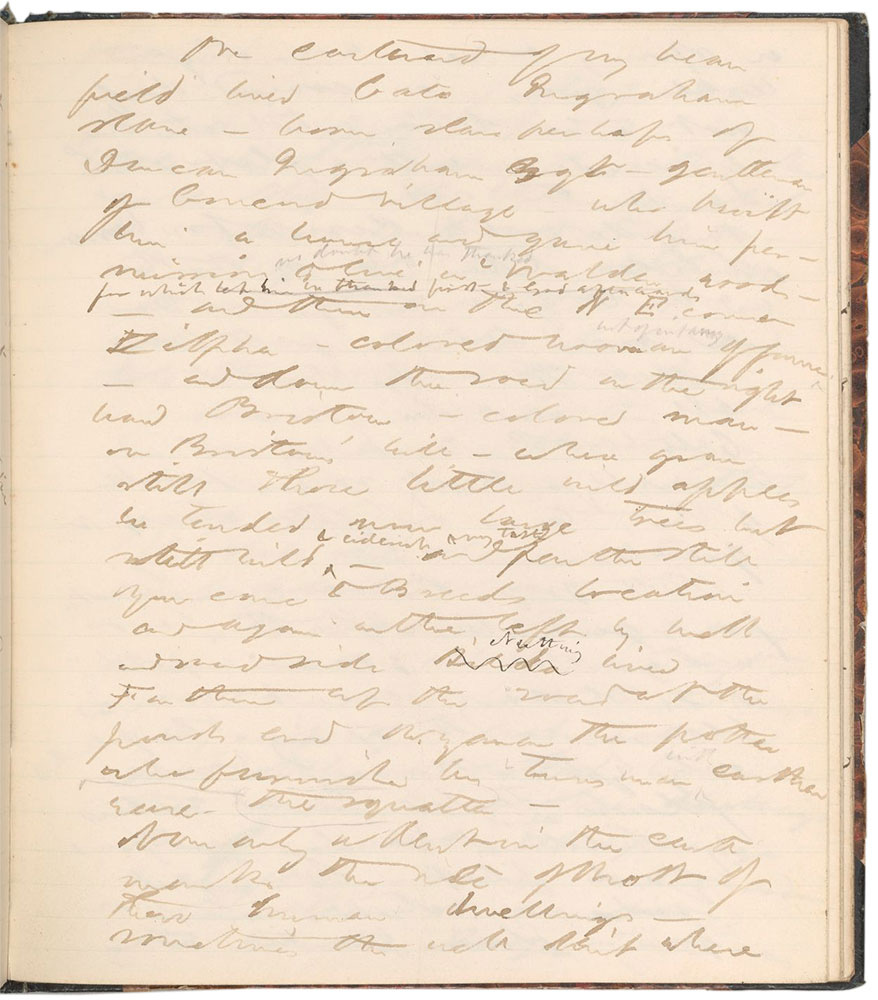 The eastward of my bean
field lived Cato Ingraham
slave — born slave perhaps of
Duncan Ingraham Esqr — gentleman
of Concord village — who built
him a house and gave him per-
no doubt he was thanked
mission to live in Walden woods —
for which let him be thanked
— and then on the N E corner
Zilpha — colored woman of
— and down the road on the right
hand Bristow — colored man —
on Bristow's hill — where grow
still those little wild apples
he tended now large trees but
& ciderish to my taste
still wild — and farther still
you come to Breed's location
and again on the left by well
Nutting
and roadside lived
Farther up the road at the
pond's end Wyman the potter
with
who furnished his towns men earthen
ware — the squatter —
Now only a dent in the earth
marks the site of most of
these human dwellings —
sometimes the well dent where